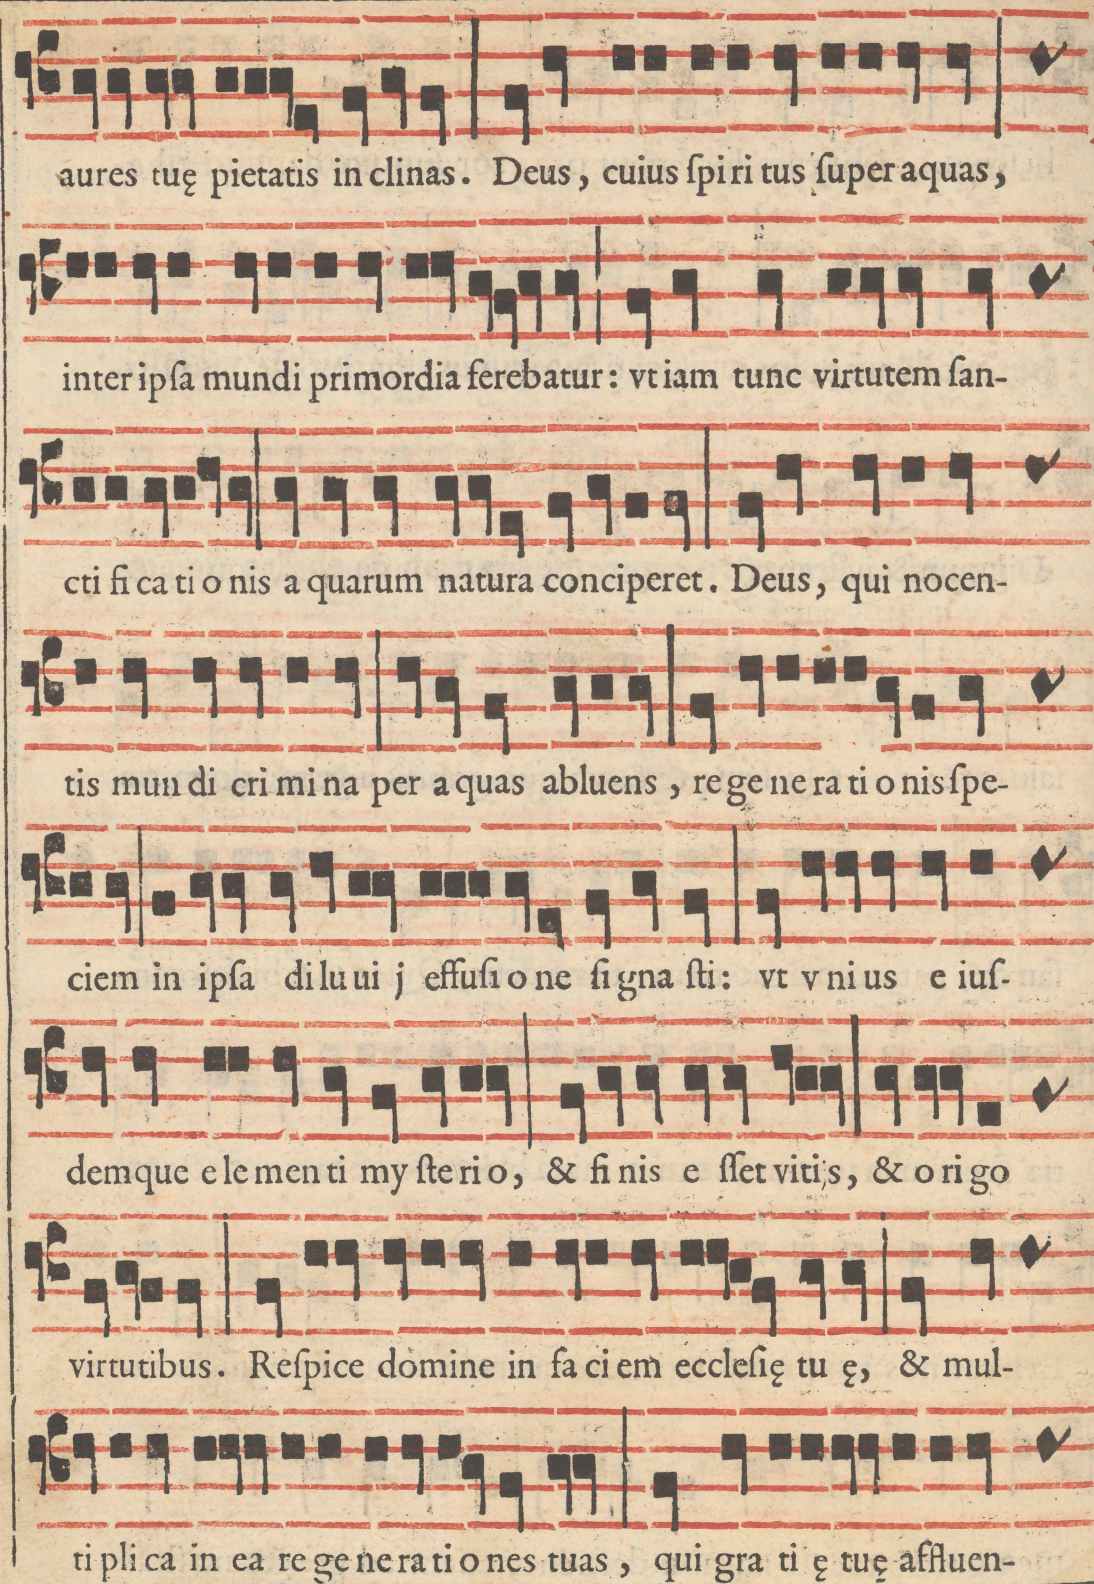 aures tuę pietatis in clinas. Deus, cuius ſpi ri tus ſuper aquas,
inter ipſa mundi primordia ferebatur: vt iam tunc virtutem ſan-
cti fi ca ti o nis a quarum natura conciperet. Deus, qui nocen-
tis mun di cri mi na per a quas abluens, re ge ne ra ti o nis ſpe-
ciem in ipſa di lu ui j effuſi o ne ſi gna ſti: vt v ni us e iuſ-
demque e le men ti my ſte ri o, & fi nis e ſſet vitijs, & o ri go
virtutibus. Reſpice domine in fa ci em eccleſię tu ę, & mul-
ti pli ca in ea re ge ne ra ti o nes tuas, qui gra ti ę tuę affluen-